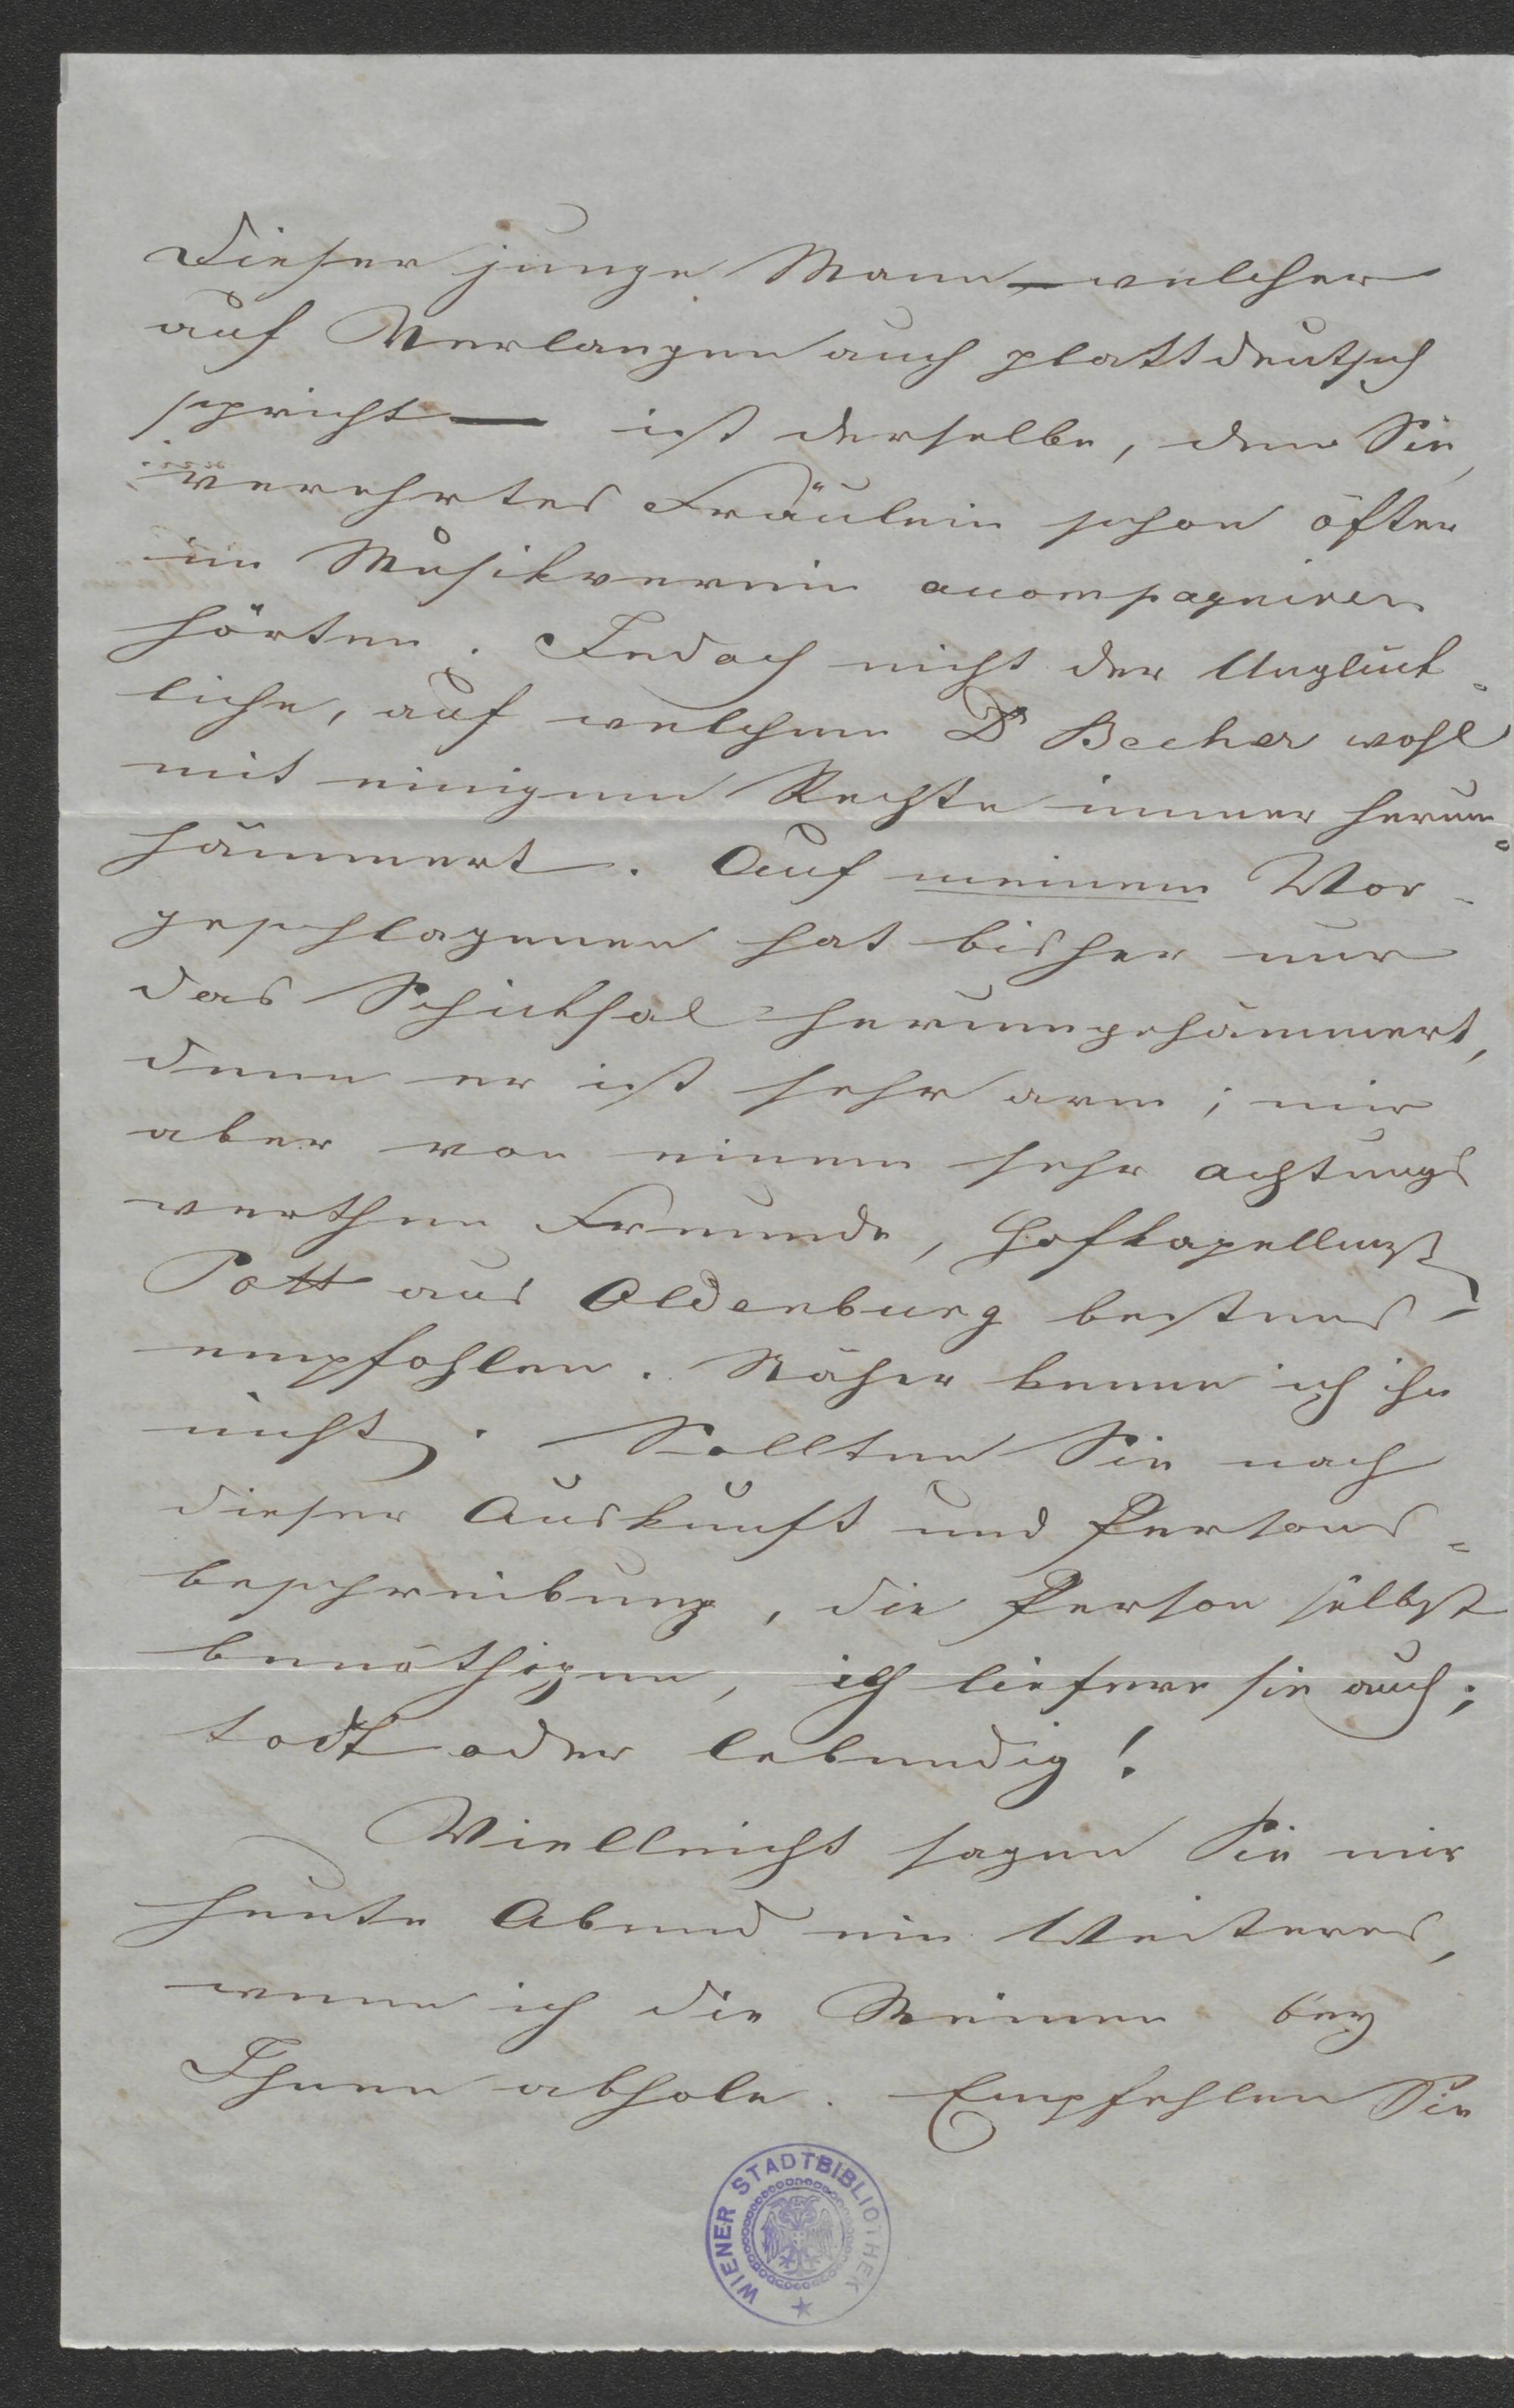 Dieser junge Mann — welcher
auf Verlangen auch plattdeutsch
spricht — ist derselbe, den Sie,
verehrtes Fräulein schon öfter
im Musikverein acompagniren
hörten. Jedoch nicht der Unglück-
liche, auf welchem Dr Becher wohl
mit einigem Rechte immer herum-
hämmert. Auf meinem Vor-
geschlagenen hat bisher nur
das Schicksal herumgehämmert,
denn er ist sehr arm; mir
aber von einem sehr achtungs
werthen Freunde, Hofkapellmst
Pott aus Oldenburg bestens
empfohlen. Näher kenne ich ihn
nicht. Sollten Sie nach
dieser Auskunft und Persons-
beschreibung, die Person selbst
benöthigen, ich liefere sie auch;
todt oder lebendig!
Vielleicht sagen Sie mir
heute Abend ein Weiteres,
wenn ich die Meinen bey
Ihnen abhole. Empfehlen Sie
WIENER STADTBIBLIOTHEK